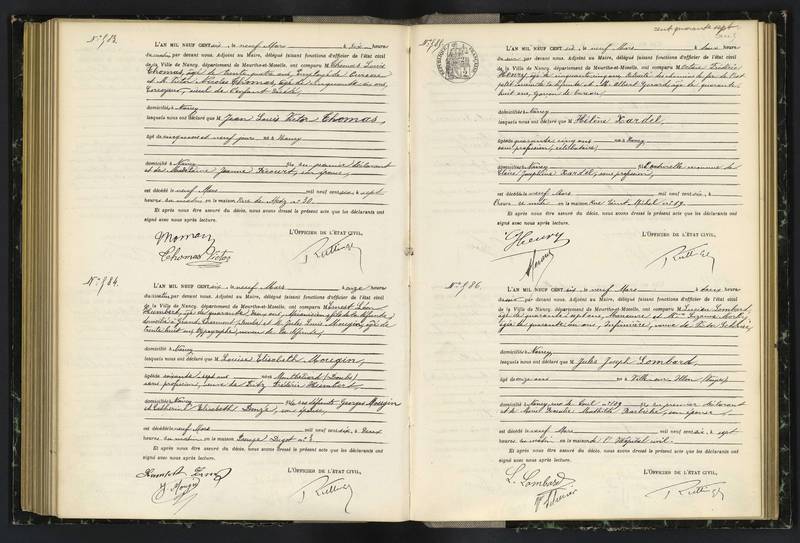 N° 783.
L'AN MIL NEUF CENT six, le neuf Mars à dix heures
du matin, par devant nous, Adjoint au Maire, délégué faisant fonctions d'officier de l'état civil
de la Ville de Nancy, département de Meurthe-et-Moselle, ont comparu M. Thomas Louis
Thomas, âgé de trente quatre ans,
et M. Victor Nicolas Thomas, âgé de cinquante six ans,
domiciliés à Nancy
lesquels nous ont déclaré que M. Jean Louis Victor Thomas,
âgé de cinq mois et neuf jours né à Nancy
domicilié à Nancy fils du premier déclarant
et de Madeleine Jeanne son épouse,
est décédé le neuf Mars mil neuf cent six, à sept
heures du matin en la maison Rue de Metz n° 30.
Et après nous être assuré du décès, nous avons dressé le présent acte que les déclarants ont
signé avec nous après lecture.
L'OFFICIER DE L'ÉTAT CIVIL,
Thomas
Thomas Victor
N° 784.
L'AN MIL NEUF CENT six, le neuf Mars à onze heures
du matin, par devant nous, Adjoint au Maire, délégué faisant fonctions d'officier de l'état civil
de la Ville de Nancy, département de Meurthe-et-Moselle, ont comparu M. Ernest Léon
Humbert, âgé de quarante ans, Mécanicien, fils de la défunte,
domicilié à Grand Charmont (Doubs) et M. Jules Louis Mougin, âgé de
trente huit ans, neveu de la défunte,
domicilié à Nancy
lesquels nous ont déclaré que M. Louise Elisabeth Mougin,
âgée de soixante sept ans née à Montbéliard (Doubs)
sans profession, veuve de Frédéric Humbert,
domiciliée à Nancy fille des défunts Georges Mougin
et Catherine Elisabeth son épouse,
est décédée le neuf Mars mil neuf cent six, à deux
heures du matin en la maison n° 3.
Et après nous être assuré du décès, nous avons dressé le présent acte que les déclarants ont
signé avec nous après lecture.
L'OFFICIER DE L'ÉTAT CIVIL,
Humbert
J. Mougin
cent quarante sept
N° 785.
L'AN MIL NEUF CENT six, le neuf Mars à deux heures
du soir, par devant nous, Adjoint au Maire, délégué faisant fonctions d'officier de l'état civil
de la Ville de Nancy, département de Meurthe-et-Moselle, ont comparu M. Victor Frédéric
Henry, âgé de cinquante cinq ans, retraité des chemins de fer de l'Est,
de la défunte et M. Albert Gérard, âgé de quarante
huit ans, garçon de bureau,
domiciliés à Nancy
lesquels nous ont déclaré que M. Hélène Xardel,
âgée de quarante cinq ans née à Nancy
sans profession, célibataire,
domiciliée à Nancy fille naturelle reconnue de
Claire Joséphine Xardel, sans profession,
est décédée le neuf Mars mil neuf cent six, à
heure en la maison rue Saint Michel n° 19.
Et après nous être assuré du décès, nous avons dressé le présent acte que les déclarants ont
signé avec nous après lecture.
L'OFFICIER DE L'ÉTAT CIVIL,
Henry
N° 786.
L'AN MIL NEUF CENT six, le neuf Mars à deux heures
du soir, par devant nous, Adjoint au Maire, délégué faisant fonctions d'officier de l'état civil
de la Ville de Nancy, département de Meurthe-et-Moselle, ont comparu M. Lucien Lombard,
âgé de quarante ans, et M. Suzanne
âgée de quarante un ans, infirmière, veuve de Victor
domiciliés à Nancy
lesquels nous ont déclaré que M. Jules Joseph Lombard,
âgé de onze ans né à (Vosges)
domicilié à Nancy, rue n° 109 fils du premier déclarant
et de Mathilde son épouse,
est décédé le neuf Mars mil neuf cent six, à sept
heures du matin en la maison de l'Hôpital civil.
Et après nous être assuré du décès, nous avons dressé le présent acte que les déclarants ont
signé avec nous après lecture.
L'OFFICIER DE L'ÉTAT CIVIL,
L. Lombard